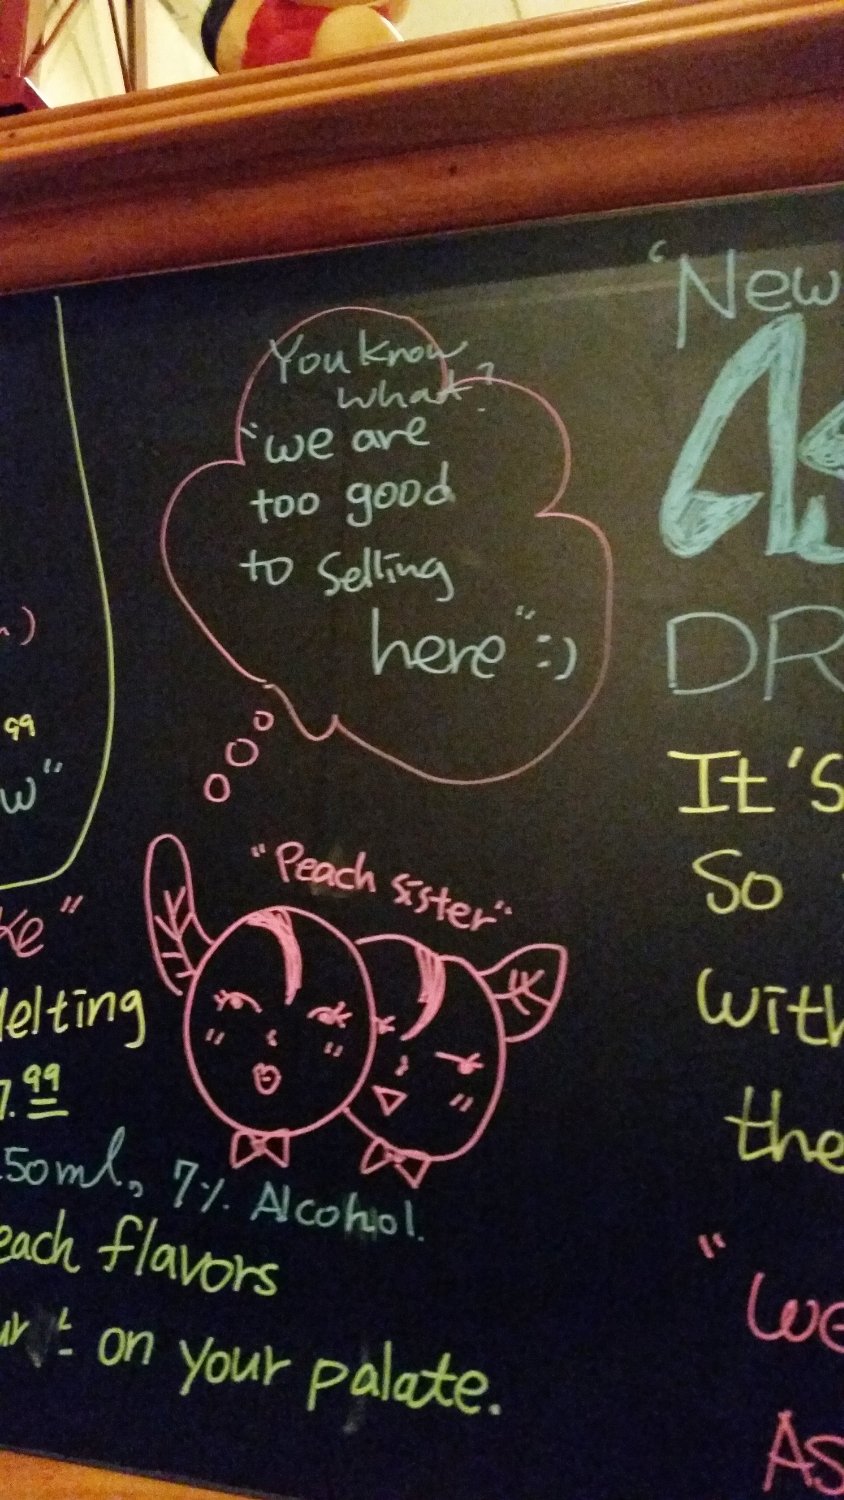 You know
what?
"we are
too good
to selling
here" :)
"Peach sister"
99
"
Melting
7.99
50ml, 7% Alcohol.
flavors
on your palate.
'New
DR
It's
So
with
the
"we
As